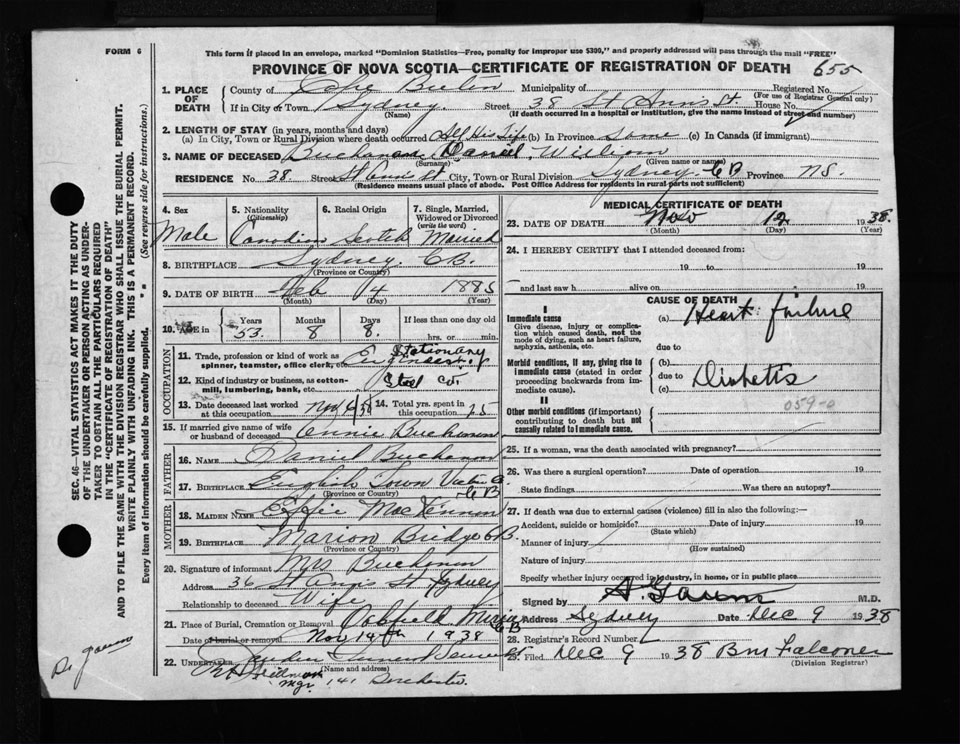 FORM 6
This form if placed in an envelope, marked "Dominion Statistics—Free, penalty for improper use $300," and properly addressed will pass through the mail "FREE"
PROVINCE OF NOVA SCOTIA—CERTIFICATE OF REGISTRATION OF DEATH 655
SEC. 46—VITAL STATISTICS ACT MAKES IT THE DUTY
OF THE UNDERTAKER OR PERSON ACTING AS UNDER-
TAKER TO OBTAIN ALL THE PARTICULARS REQUIRED
IN THE "CERTIFICATE OF REGISTRATION OF DEATH"
AND TO FILE THE SAME WITH THE DIVISION REGISTRAR WHO SHALL ISSUE THE BURIAL PERMIT.
WRITE PLAINLY WITH UNFADING INK. THIS IS A PERMANENT RECORD.
Every item of information should be carefully supplied. " " (See reverse side for instructions.)
1. PLACE OF DEATH
County of Cape Breton Municipality of Registered No.
(For use of Registrar General only)
If in City or Town Sydney. Street 38 St Ann's St. House No.
(Name) (If death occurred in a hospital or institution, give the name instead of street and number)
2. LENGTH OF STAY (in years, months and days)
(a) In City, Town or Rural Division where death occurred All His Life (b) In Province Same (c) In Canada (if immigrant)
3. NAME OF DECEASED Buchanan Daniel William
(Surname) (Given name or names)
RESIDENCE No. 38. Street St Ann's St City, Town or Rural Division Sydney. CB Province NS.
(Residence means usual place of abode. Post Office Address for residents in rural parts not sufficient)
4. Sex Male
5. Nationality (Citizenship) Canadian
6. Racial Origin Scotch
7. Single, Married, Widowed or Divorced (write the word) Married
8. BIRTHPLACE Sydney. CB.
(Province or Country)
9. DATE OF BIRTH Feb 4 1885
(Month) (Day) (Year)
10. AGE in Years 53. Months 8 Days 8. If less than one day old hrs. or min.
OCCUPATION
11. Trade, profession or kind of work as spinner, teamster, office clerk, etc. Stationary Engineer
12. Kind of industry or business, as cotton-mill, lumbering, bank, etc. Steel Co.
13. Date deceased last worked at this occupation Nov 6/38
14. Total yrs. spent in this occupation 25
15. If married give name of wife or husband of deceased Annie Buchanan
FATHER
16. NAME Daniel Buchanan
17. BIRTHPLACE English Town Victoria Co CB
(Province or Country)
MOTHER
18. MAIDEN NAME Effie MacKinnon
19. BIRTHPLACE Marion Bridge CB.
(Province or Country)
20. Signature of informant Mrs Buchanan
Address 36 St Ann's St Sydney
Relationship to deceased Wife
21. Place of Burial, Cremation or Removal Oakfield Mira CB
Date of burial or removal Nov 14th 1938
22. UNDERTAKER
(Name and address)
Mgr. 141 Dorchester.
MEDICAL CERTIFICATE OF DEATH
23. DATE OF DEATH Nov 12 1938.
(Month) (Day) (Year)
24. I HEREBY CERTIFY that I attended deceased from:
19 to 19
and last saw h alive on 19
CAUSE OF DEATH
I
Immediate cause
Give disease, injury or complication which caused death, not the mode of dying, such as heart failure, asphyxia, asthenia, etc.
(a) Heart failure
due to
Morbid conditions, if any, giving rise to immediate cause (stated in order proceeding backwards from immediate cause).
(b) Diabetis
due to
(c)
059-0
II
Other morbid conditions (if important) contributing to death but not causally related to immediate cause.
25. If a woman, was the death associated with pregnancy?
26. Was there a surgical operation? Date of operation 19
State findings Was there an autopsy?
27. If death was due to external causes (violence) fill in also the following:—
Accident, suicide or homicide? Date of injury 19
(State which)
Manner of injury
(How sustained)
Nature of injury
Specify whether injury occurred in industry, in home, or in public place
Signed by A. Gaum M.D.
Address Sydney Date Dec 9 1938
28. Registrar's Record Number
29. Filed Dec 9 1938 BM Falconer
(Division Registrar)
Dr gaum